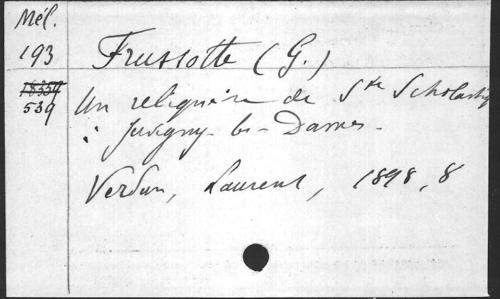 Mél.
193
18339
539
Frussotte (G.)
Un reliquaire de Ste Scholastiq
à Juvigny-les-Dames.
Verdun, Laurent, 1898, 8